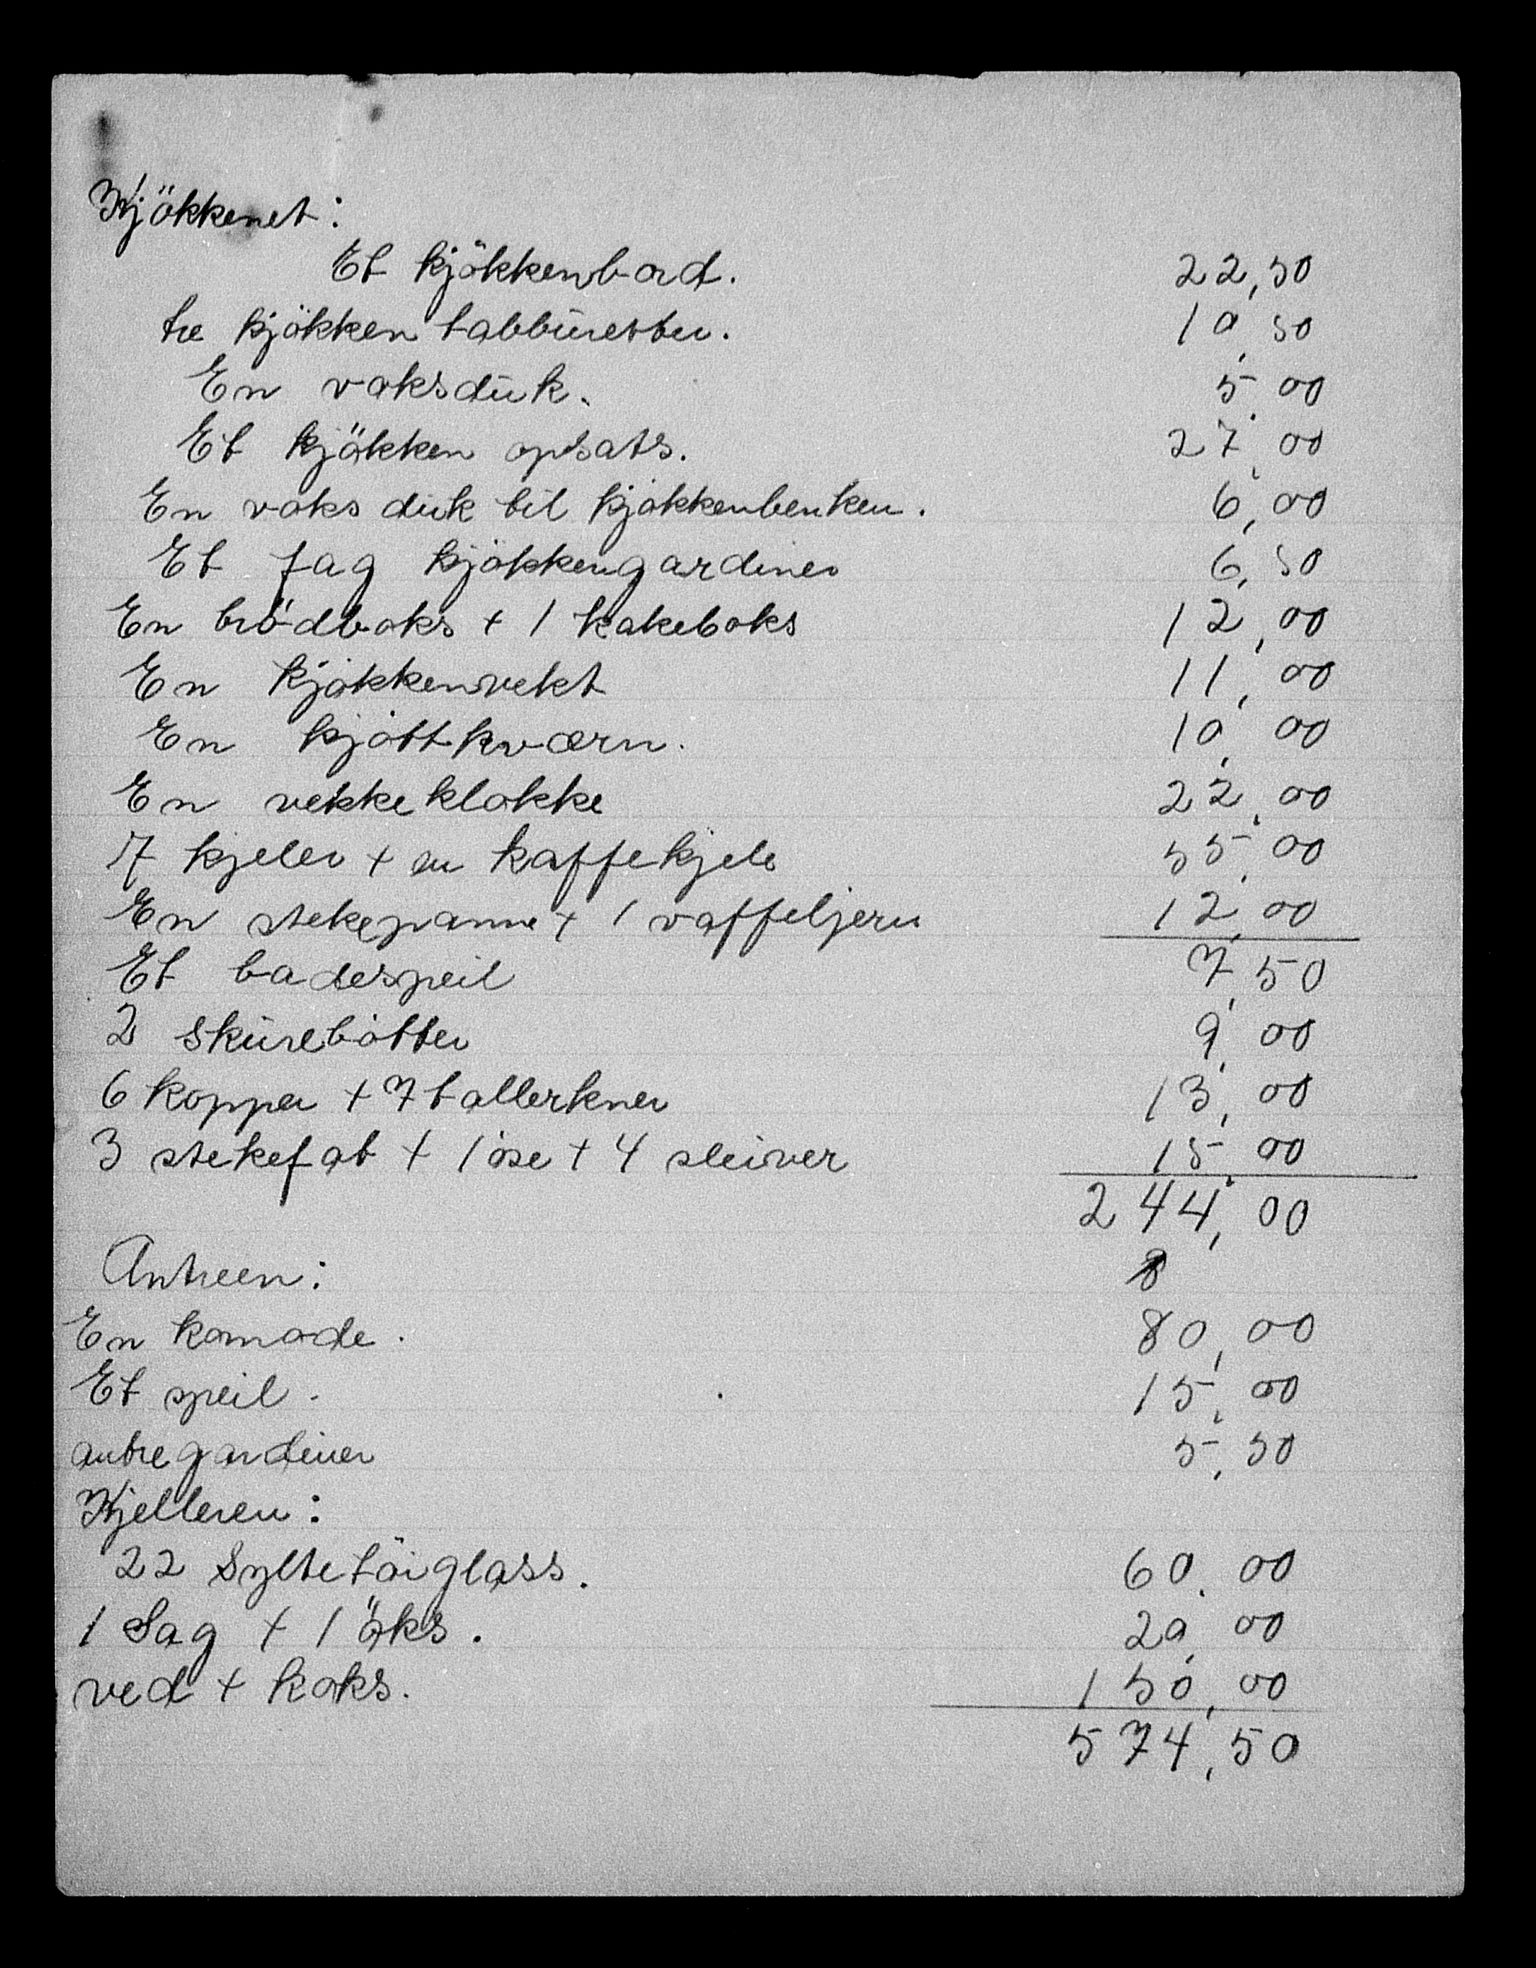 Kjökkenet:
Et kjökkenbord. 22,50
tre kjökken tabburetter. 10,50
En voksduk. 5,00
Et kjökken opsats. 27,00
En voks duk til kjökkenbenken. 6,00
Et fag kjökkengardiner 6,50
En brödboks + 1 kakeboks 12,00
En kjökkenvekt 11,00
En kjöttkværn. 10,00
En vekkeklokke 22,00
7 kjeler + en kaffekjele 55,00
En stekepanne + 1 vaffeljern 12,00
Et badespeil 7,50
2 skurebötter 9,00
6 kopper + 7 tallerkner 13,00
3 stekefat + 1 öse + 4 sleiver 15,00
244,00
Antreen:
En komode. 80,00
Et speil. 15,00
antregardiner 5,50
Kjelleren:
22 Syltetöiglass. 60,00
1 Sag + 1 öks. 20,00
ved + koks. 150,00
574,50